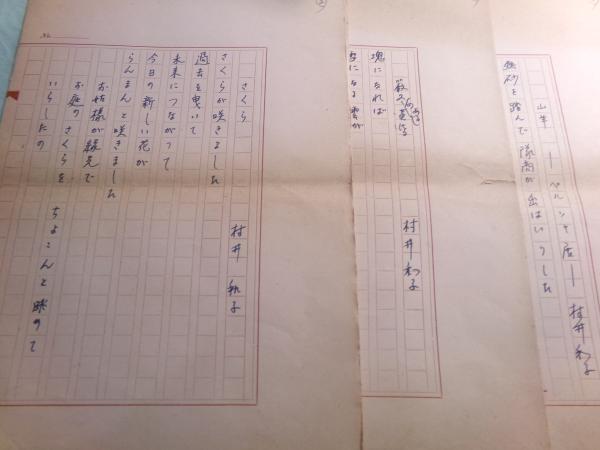 山羊 ― ペルシャ店 ― 村井和子
熱砂を踏んで隊商が出はいりした
村井和子
塊になれば
雪になる雲が
さくら 村井和子
さくらが咲きました
過去を曳いて
未来につながって
今日の新しい花が
らんまんと咲きました
お姑様が縁先で
お庭の さくらを
いらしたの ちよこんと眺めて